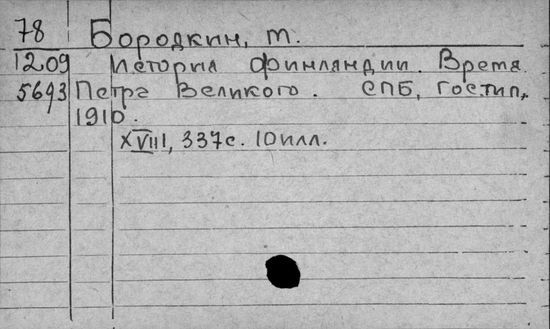 78 Бородкин, М.
1209 История Финляндии. Время
5693 Петра Великого. СПБ, Гос.тип.,
1910.
XVIII, 337с. 10илл.